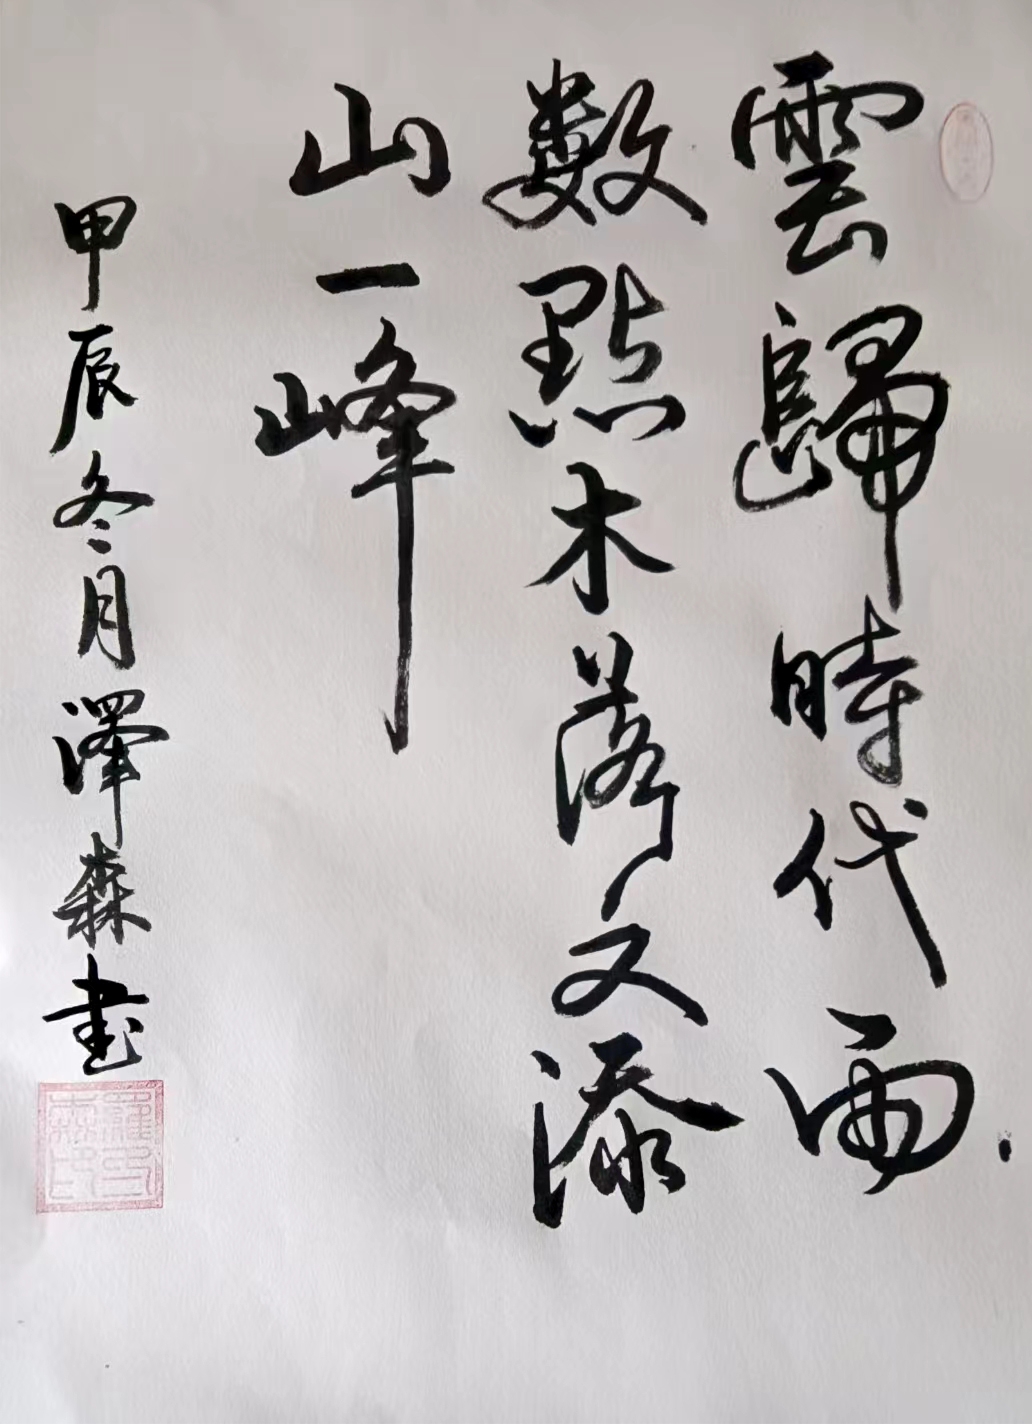 雲歸時代雨
數點木落又添
山一峰
甲辰冬月澤森書